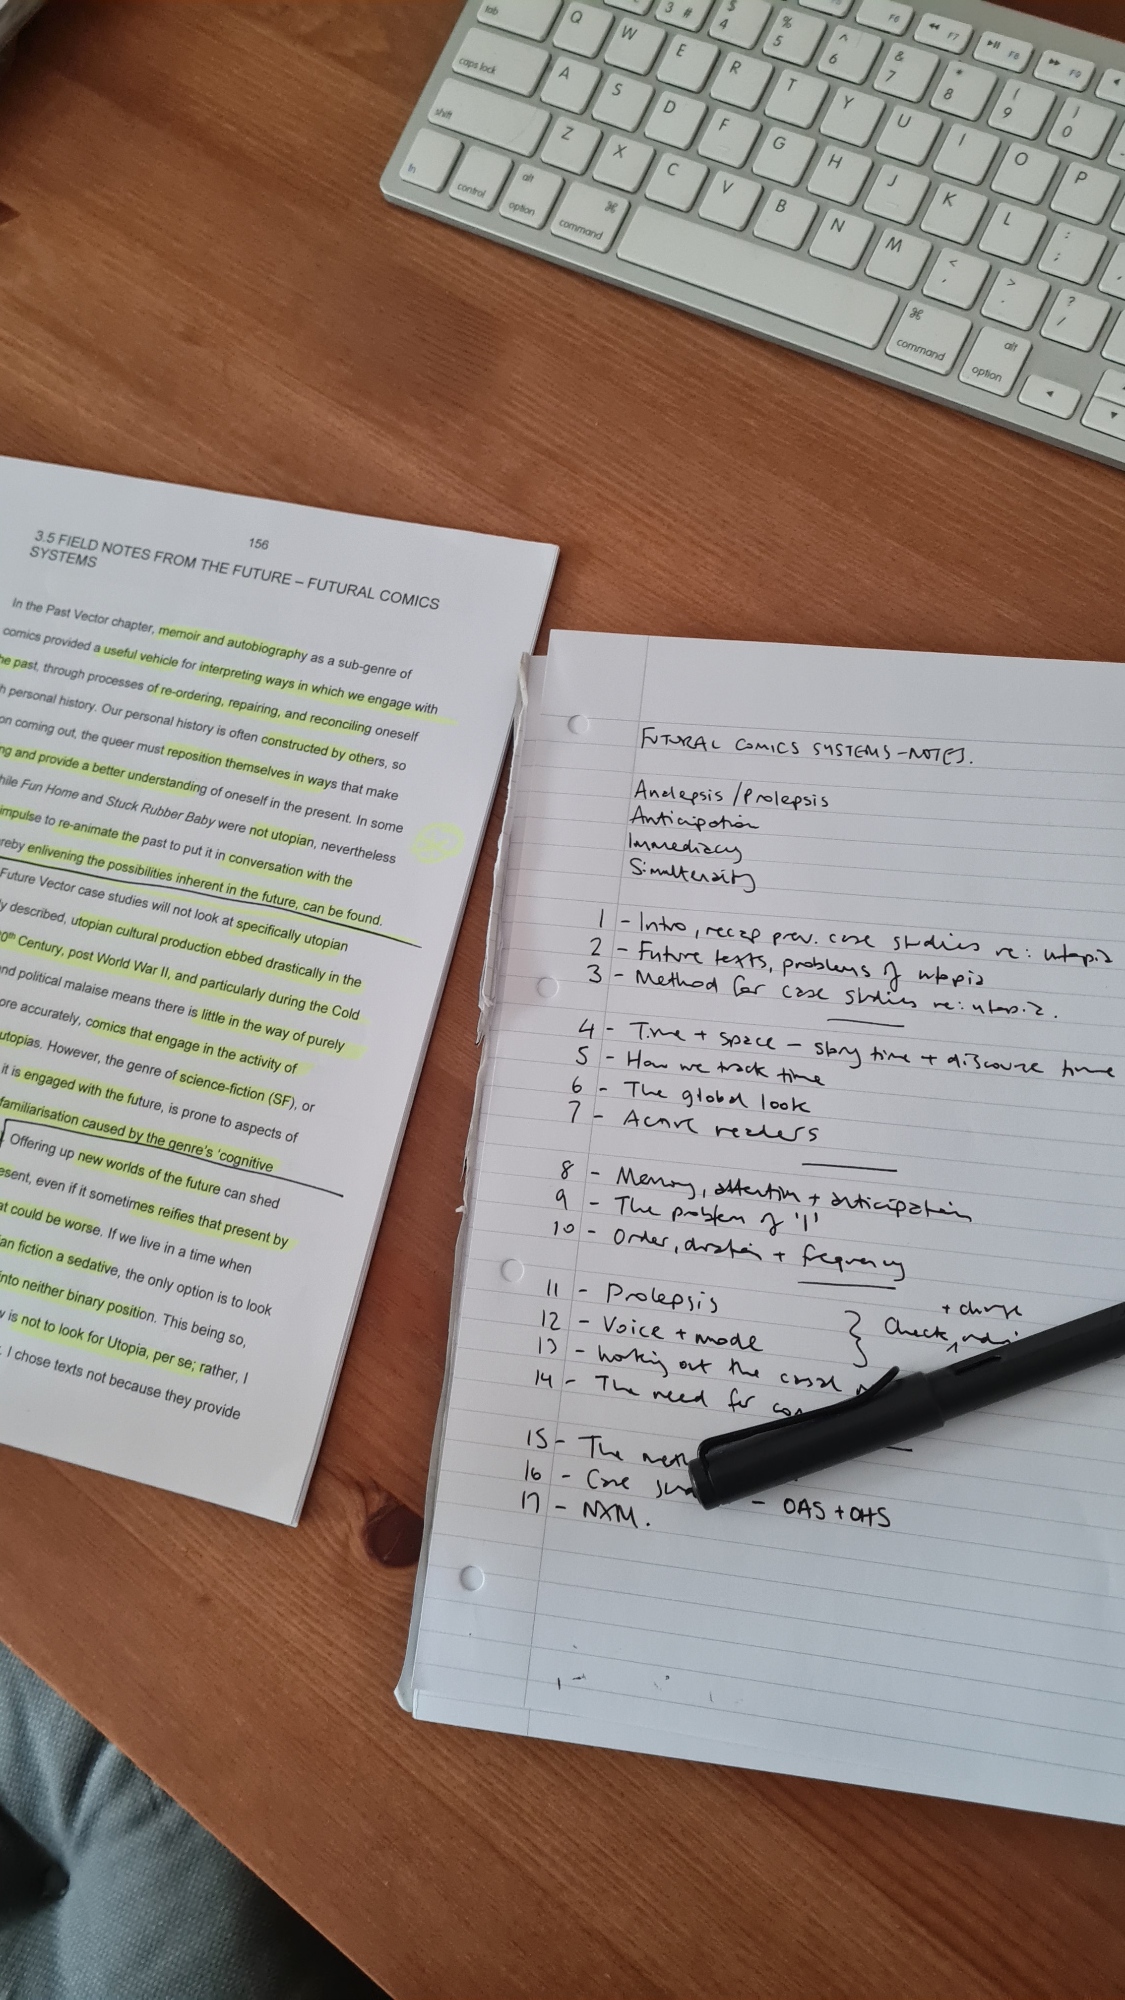 tab Q W E R T Y U I O P
3 # $ 4 % 5 ^ 6 & 7 * 8 ( 9 ) 0
F6 F7 F8 F9
caps lock A S D F G H J K L : ;
shift Z X C V B N M < , > . ? /
fn control alt option ⌘ command ⌘ command alt option
156
3.5 FIELD NOTES FROM THE FUTURE – FUTURAL COMICS
SYSTEMS
In the Past Vector chapter, memoir and autobiography as a sub-genre of
comics provided a useful vehicle for interpreting ways in which we engage with
he past, through processes of re-ordering, repairing, and reconciling oneself
h personal history. Our personal history is often constructed by others, so
on coming out, the queer must reposition themselves in ways that make
ng and provide a better understanding of oneself in the present. In some
hile Fun Home and Stuck Rubber Baby were not utopian, nevertheless
impulse to re-animate the past to put it in conversation with the
reby enlivening the possibilities inherent in the future, can be found.
Future Vector case studies will not look at specifically utopian
y described, utopian cultural production ebbed drastically in the
0th Century, post World War II, and particularly during the Cold
nd political malaise means there is little in the way of purely
ore accurately, comics that engage in the activity of
utopias. However, the genre of science-fiction (SF), or
it is engaged with the future, is prone to aspects of
familiarisation caused by the genre's 'cognitive
Offering up new worlds of the future can shed
esent, even if it sometimes reifies that present by
at could be worse. If we live in a time when
an fiction a sedative, the only option is to look
into neither binary position. This being so,
w is not to look for Utopia, per se; rather, I
I chose texts not because they provide
FUTURAL COMICS SYSTEMS – NOTES.
Analepsis / Prolepsis
Anticipation
Immediacy
Simulteneity
1 - Intro, recap prev. case studies re: utopia
2 - Future texts, problems of utopia
3 - Method for case studies re: utopia.
4 - Time + space – story time + discourse time
5 - How we track time
6 - The global look
7 - Active readers
8 - Memory, attention + anticipation
9 - The problem of 'I'
10 - Order, duration + frequency
11 - Prolepsis
+ change
12 - Voice + mode } Check
13 - Working out the
14 - The need for
15 - The
16 - Case – OAS + OHS
17 - NXM.